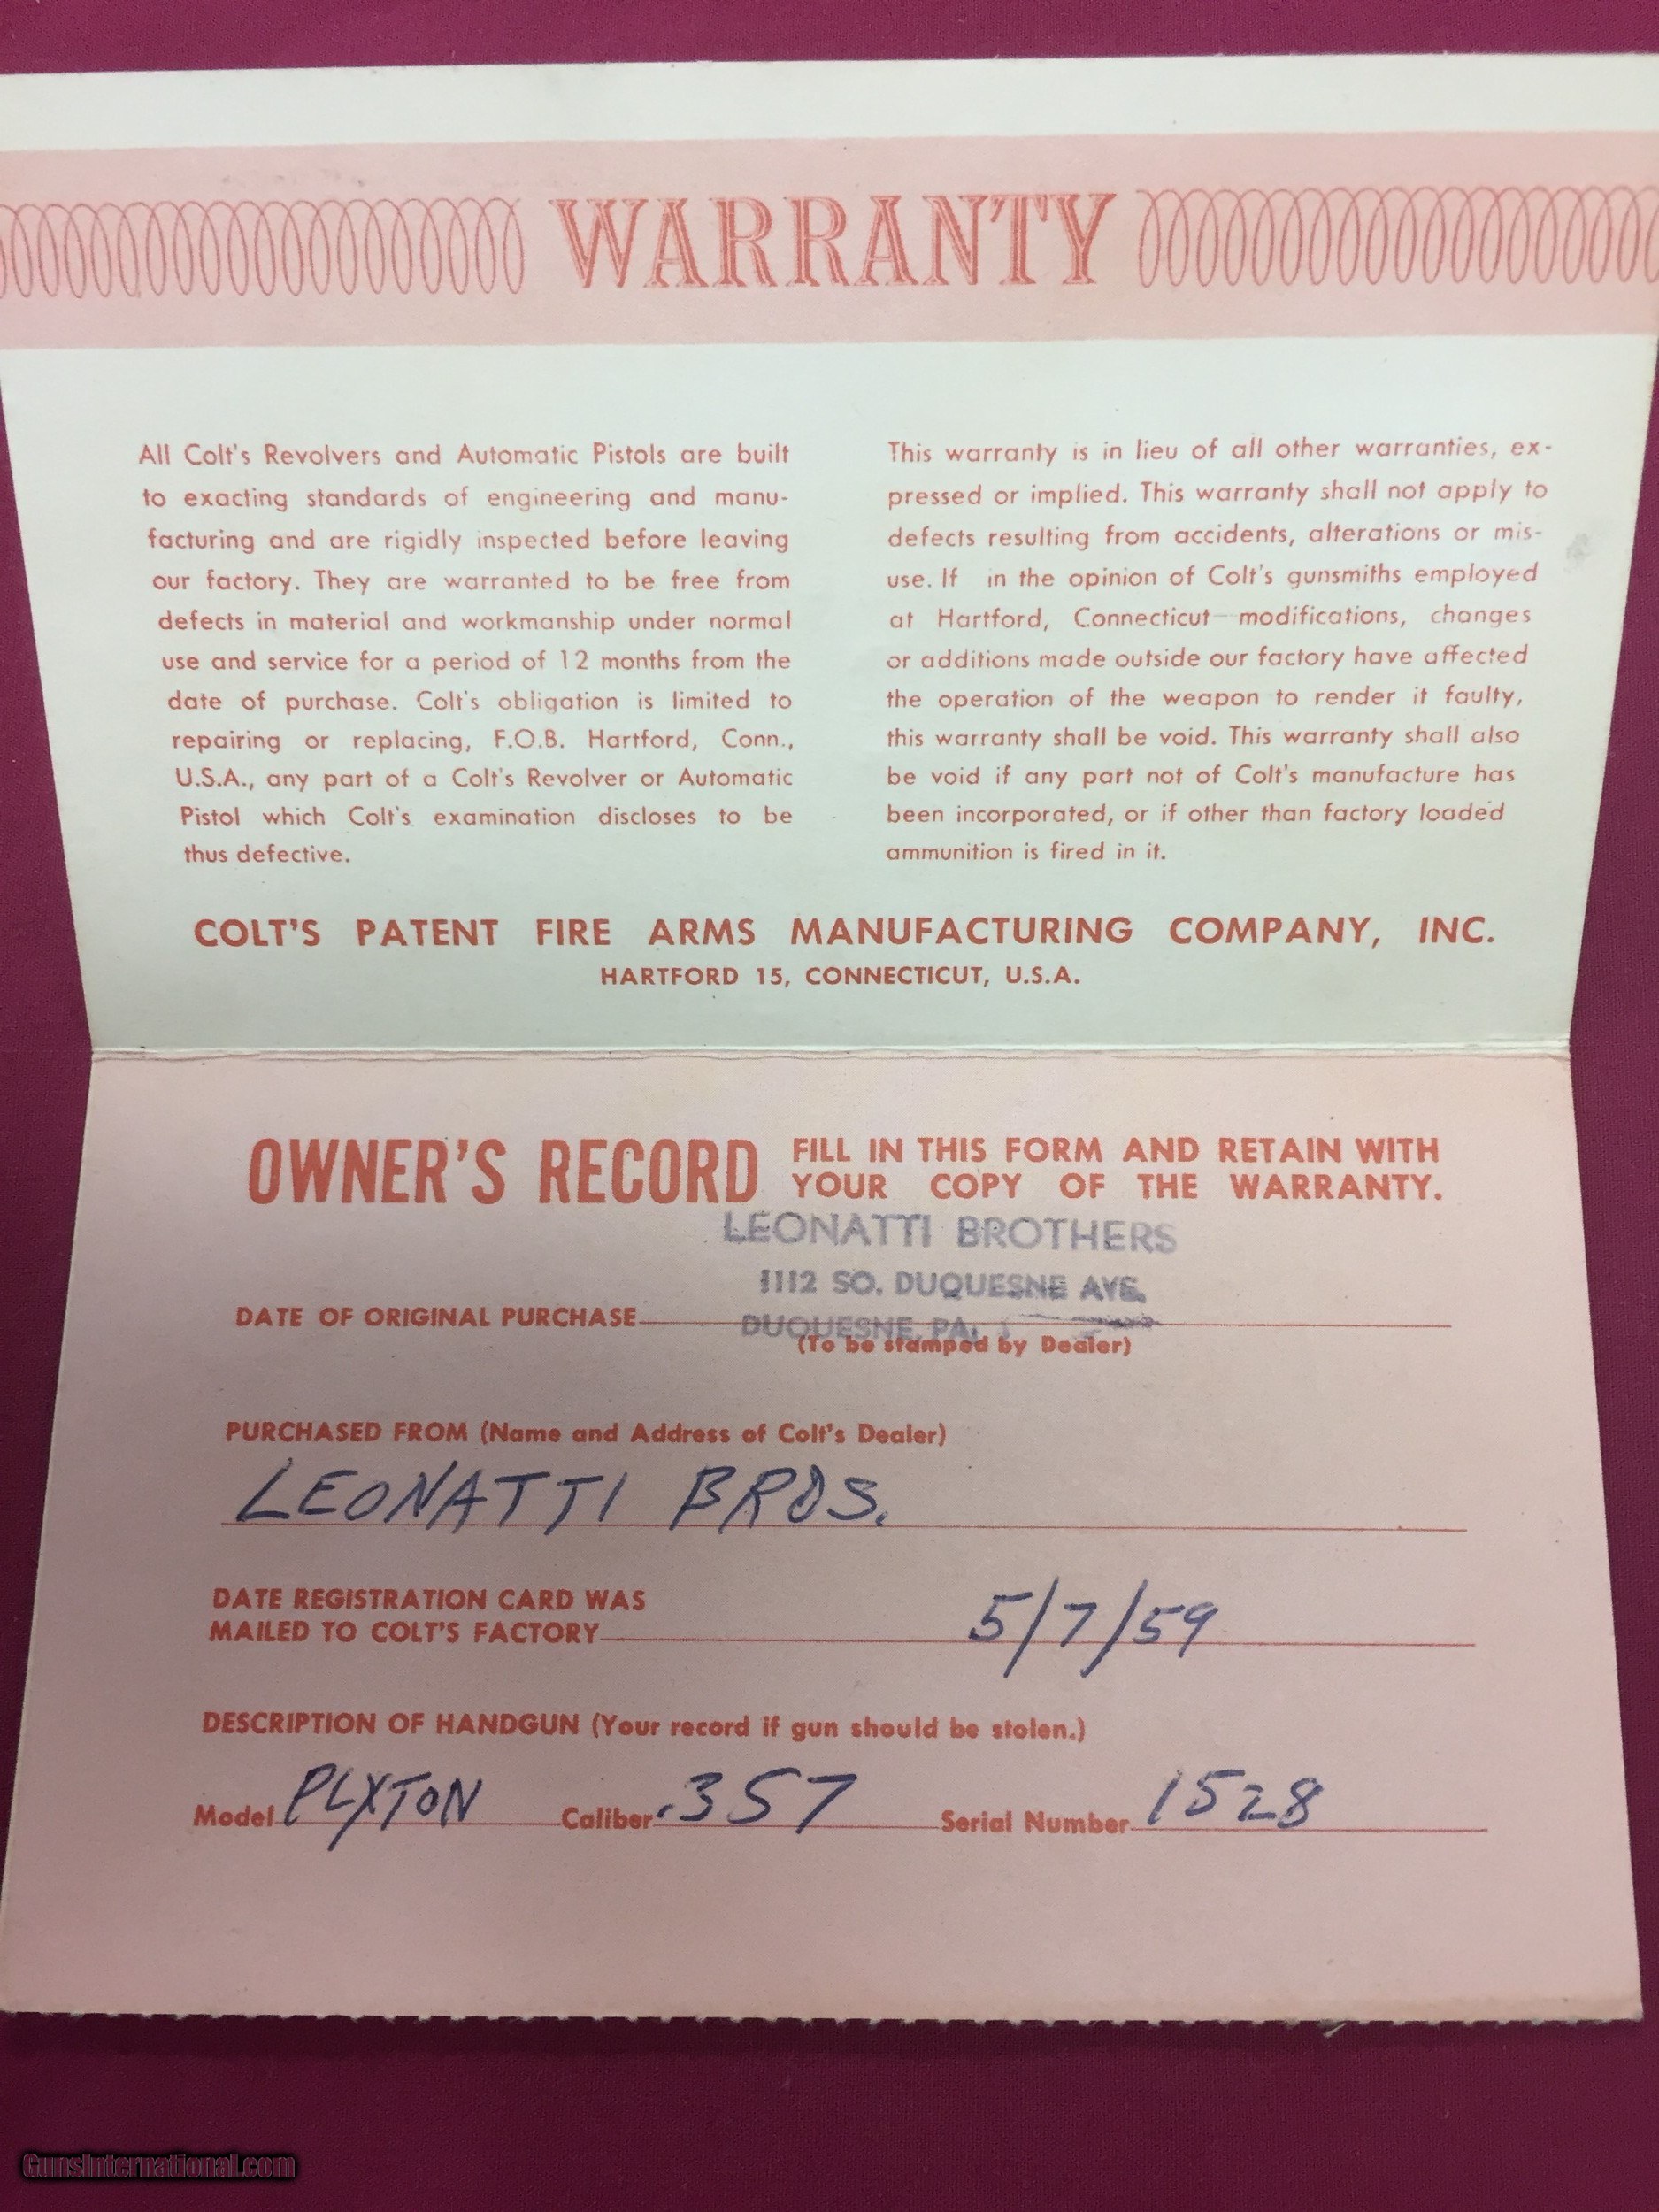 WARRANTY
All Colt's Revolvers and Automatic Pistols are built
to exacting standards of engineering and manu-
facturing and are rigidly inspected before leaving
our factory. They are warranted to be free from
defects in material and workmanship under normal
use and service for a period of 12 months from the
date of purchase. Colt's obligation is limited to
repairing or replacing, F.O.B. Hartford, Conn.,
U.S.A., any part of a Colt's Revolver or Automatic
Pistol which Colt's examination discloses to be
thus defective.
This warranty is in lieu of all other warranties, ex-
pressed or implied. This warranty shall not apply to
defects resulting from accidents, alterations or mis-
use. If in the opinion of Colt's gunsmiths employed
at Hartford, Connecticut modifications, changes
or additions made outside our factory have affected
the operation of the weapon to render it faulty,
this warranty shall be void. This warranty shall also
be void if any part not of Colt's manufacture has
been incorporated, or if other than factory loaded
ammunition is fired in it.
COLT'S PATENT FIRE ARMS MANUFACTURING COMPANY, INC.
HARTFORD 15, CONNECTICUT, U.S.A.
OWNER'S RECORD FILL IN THIS FORM AND RETAIN WITH
YOUR COPY OF THE WARRANTY.
LEONATTI BROTHERS
1112 SO. DUQUESNE AVE.
DATE OF ORIGINAL PURCHASE
DUQUESNE, PA.
(To be stamped by Dealer)
PURCHASED FROM (Name and Address of Colt's Dealer)
LEONATTI BROS.
DATE REGISTRATION CARD WAS
MAILED TO COLT'S FACTORY 5/7/59
DESCRIPTION OF HANDGUN (Your record if gun should be stolen.)
Model PLYTON Caliber .357 Serial Number 1528
GunsInternational.com